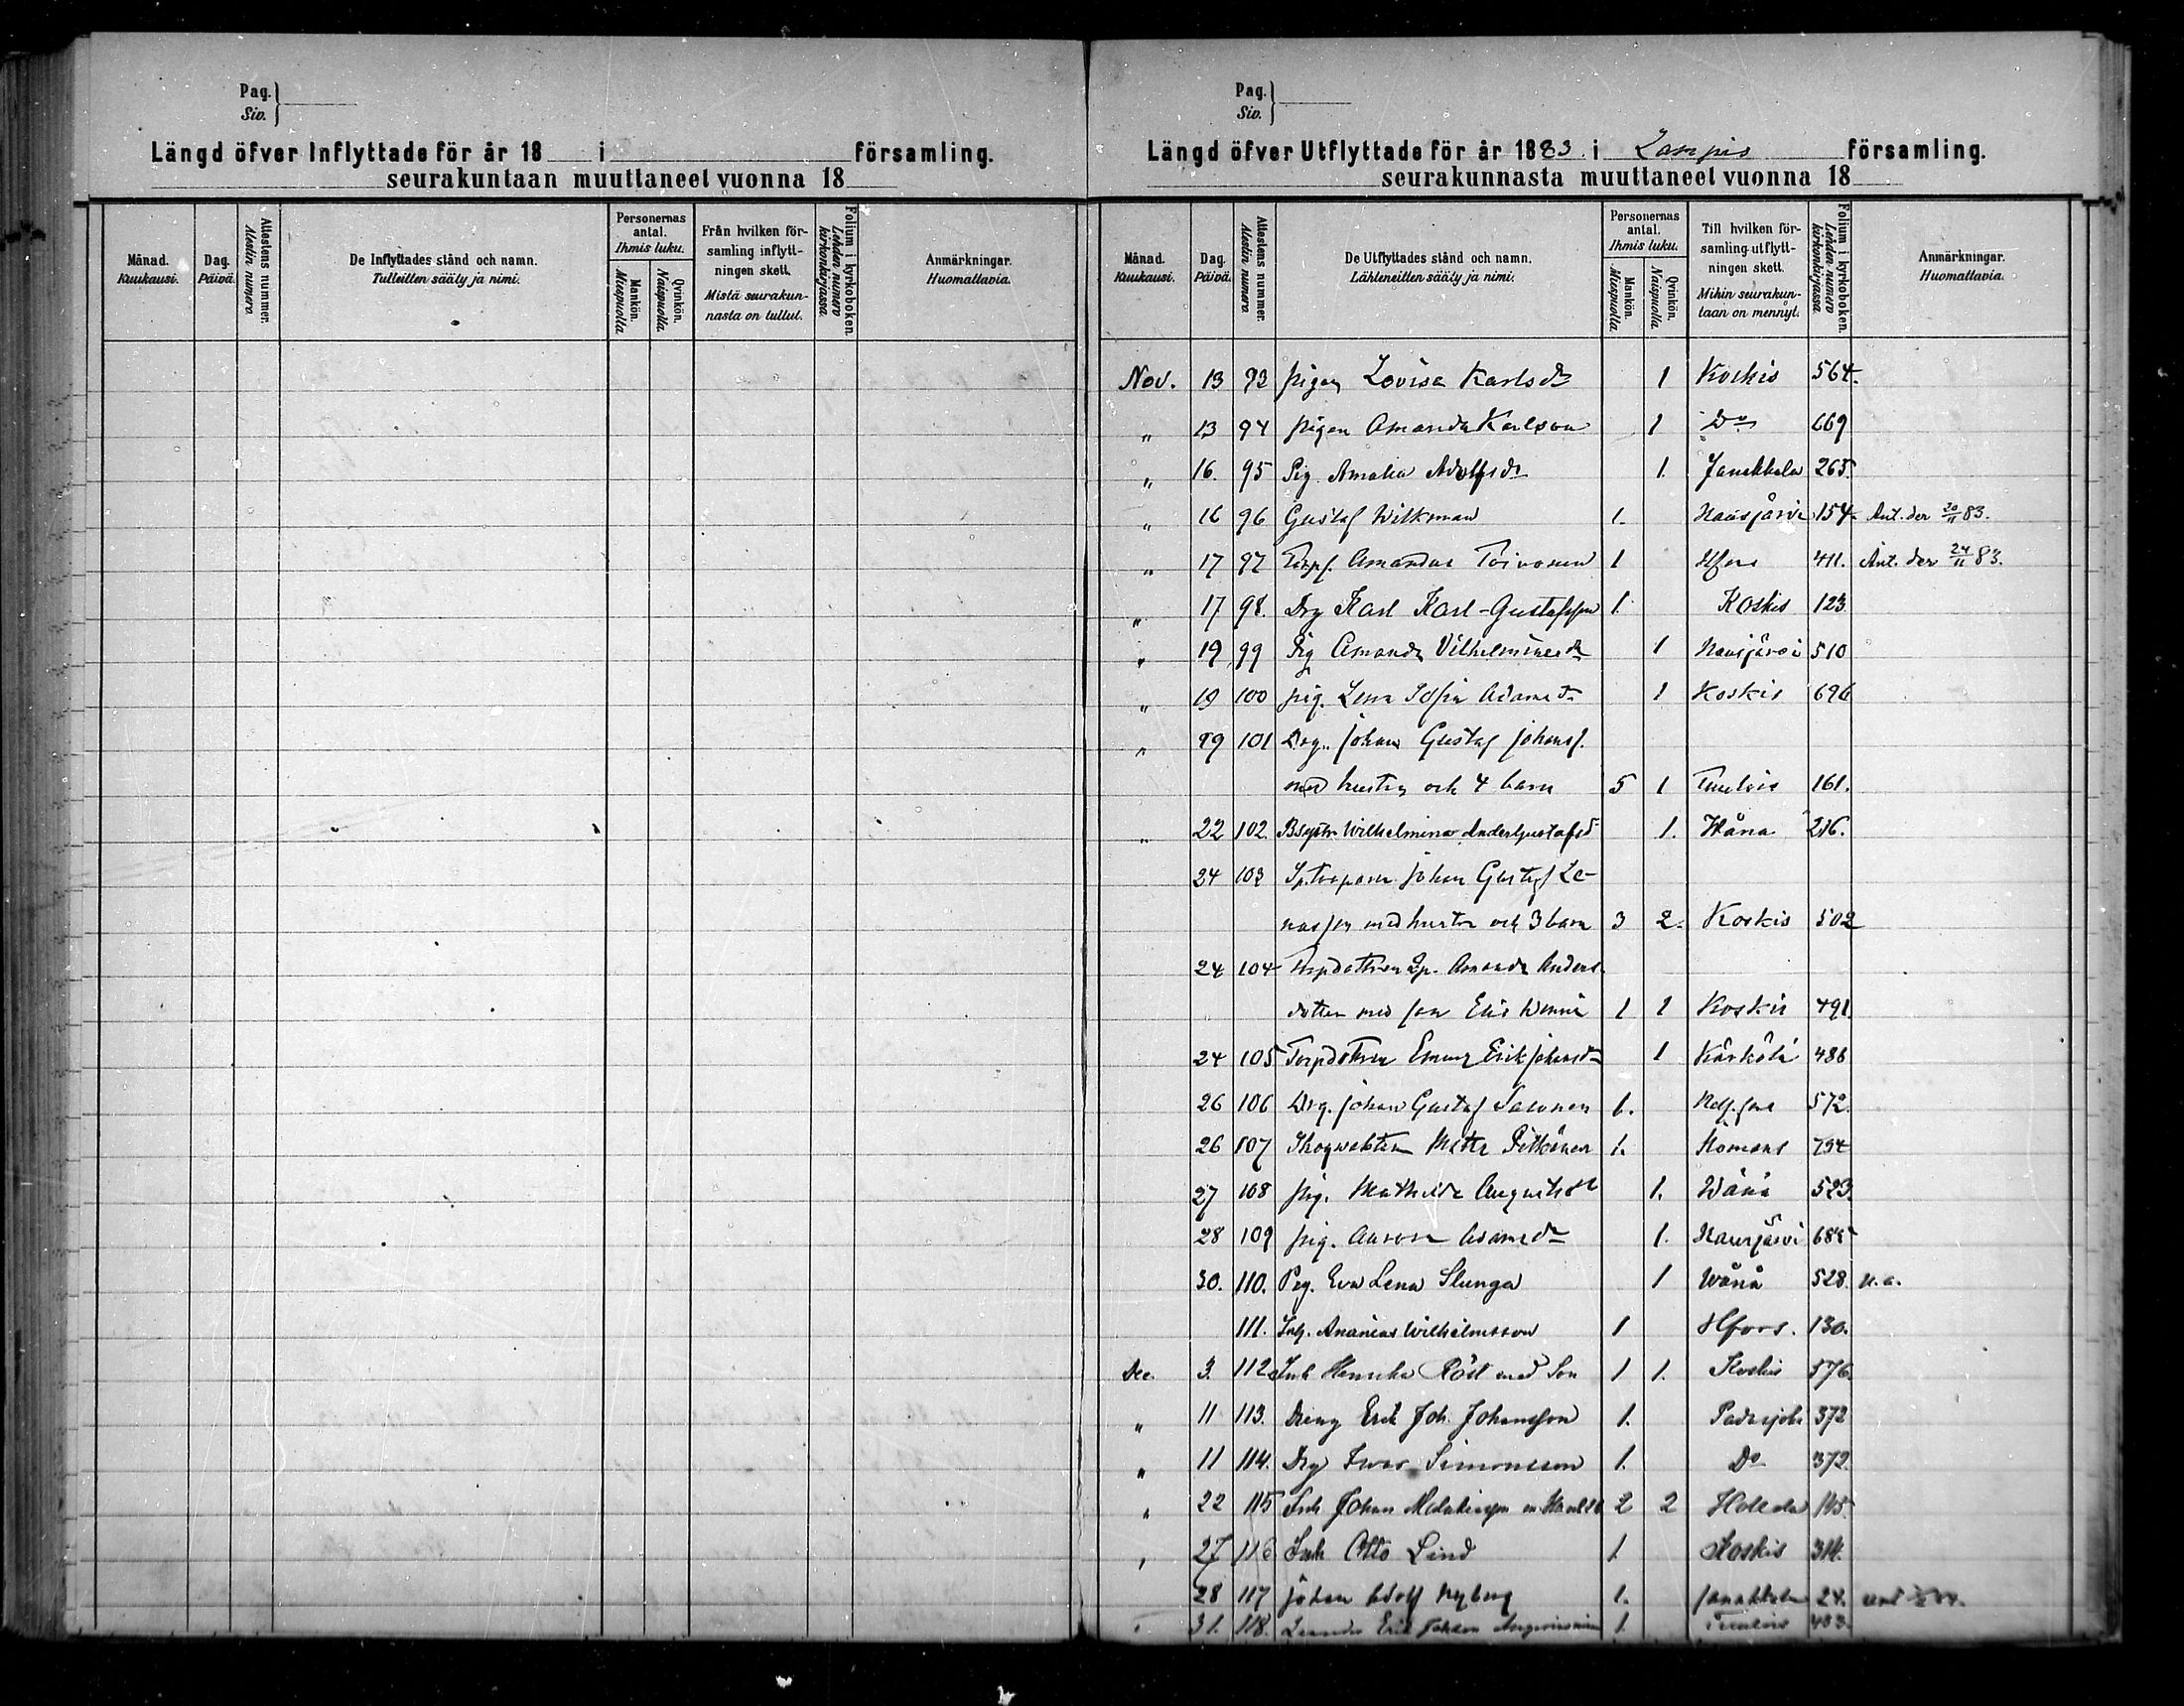 Pag.
Siv.
Längd öfver Inflyttade för år 18 i församling.
seurakuntaan muuttaneet vuonna 18
Månad. Kuukausi.
Dag. Päivä.
Attestens nummer. Alestin numero.
De Inflyttades stånd och namn.
Tulleitten sääty ja nimi.
Personernas antal. Ihmis luku.
Mankön. Miespuolia.
Qvinkön. Naispuolia.
Från hvilken församling inflyttningen skett.
Mistä seurakunnasta on tullut.
Folium i kyrkoboken. Lehden numero kirkonkirjassa.
Anmärkningar. Huomattavia.
Pag.
Siv.
Längd öfver Utflyttade för år 1883 i Lampis församling.
seurakunnasta muuttaneet vuonna 18
Månad. Kuukausi.
Dag. Päivä.
Attestens nummer. Alestin numero.
De Utflyttades stånd och namn.
Lähteneitten sääty ja nimi.
Personernas antal. Ihmis luku.
Mankön. Miespuolia.
Qvinkön. Naispuolia.
Till hvilken församling utflyttningen skett.
Mihin seurakuntaan on mennyt.
Folium i kyrkoboken. Lehden numero kirkonkirjassa.
Anmärkningar. Huomattavia.
Nov. 13 93 pigan Lovisa Karlsdr 1 Koskis 564.
" 13 94 pigan Amanda Karlsson 1 Do 669
" 16. 95 Pig. Amalia Adolfsdr 1. Janakkala 265.
" 16 96 Gustaf Wilkman 1. Hausjärvi 154. Ant. der 20/11 83.
" 17 97 Torps. Amandus Toivonen 1 Hfors 411. Ant. der 24/11 83.
" 17 98. Drg Karl Karl-Gustafsson 1. Koskis 123
" 19 99 Pig Amanda Vilhelminasdr 1 Hausjärvi 510
" 19 100 pig. Lena Sofia Adamsdr 1 Koskis 696
" 19 101 Drg. Johan Gustaf Johanss.
med hustru och 4 barn 5 1 Tuulois 161.
" 22 102. Wilhelmina Andersgustafsd 1. Wånå 216.
24 103 Johan Gustaf Le-
nasson med hustru och 3 barn 3 2. Koskis 502
24 104 Torpdottren Amanda Anders
dotter med son 1 1 Koskis 491.
24 105 Torpdottren Emma Erikjohansdr 1 Kärkölä 486
26 106 Drg. Johan Gustaf Salonen 1. Helsfors 572.
26 107 Skogvaktaren Matts Pitkänen 1. 794
27 108 pig. Mathilda Augustsdr 1. Wånå 523
28 109 pig. Aurora Adamsdr 1. Hausjärvi 685
30. 110. Pig. Eva Lena Slunga 1 Wånå 528. u.a.
111. Inh. Ananias Wilhelmsson 1 Hfors. 130.
Dec. 3. 112 Inh Henrika Röst med Son 1 1. Koskis 576.
" 11 113. Dreng Erik Joh. Johansson 1. Padasjoki 372
" 11 114. Drg Ivar Simonsson 1. Do 372.
" 22 115 Inh Johan 2 2 Hollola 145.
" 27 116 Inh Otto Lind 1. Koskis 314.
28 117 Johan Adolf Nyberg 1. Janakkala 24.
" 31. 118. Leander Erik Johan 1. Tuulois 403.